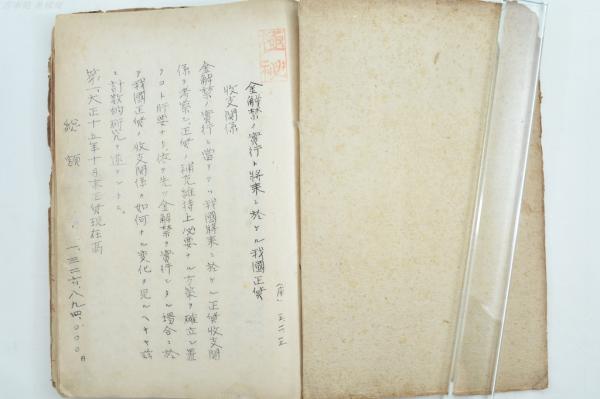 金解禁ノ實行ト將來ニ於ケル我國正貨
收支關係
金解禁ノ實行ニ當リテハ我國將來ニ於ケル正貨收支關
係ヲ考察シ正貨ノ補充維持上必要ナル方策ヲ確立シ置
クコト肝要ナリ依テ先ツ金解禁ヲ實行シタル場合ニ於
テ我國正貨ノ收支關係カ如何ナル變化ヲ見ルヘキヤ茲
ニ計數的研究ヲ遂ケントス
第一、大正十五年十月末正貨現在高
總額 一三二六、八九四、〇〇〇円